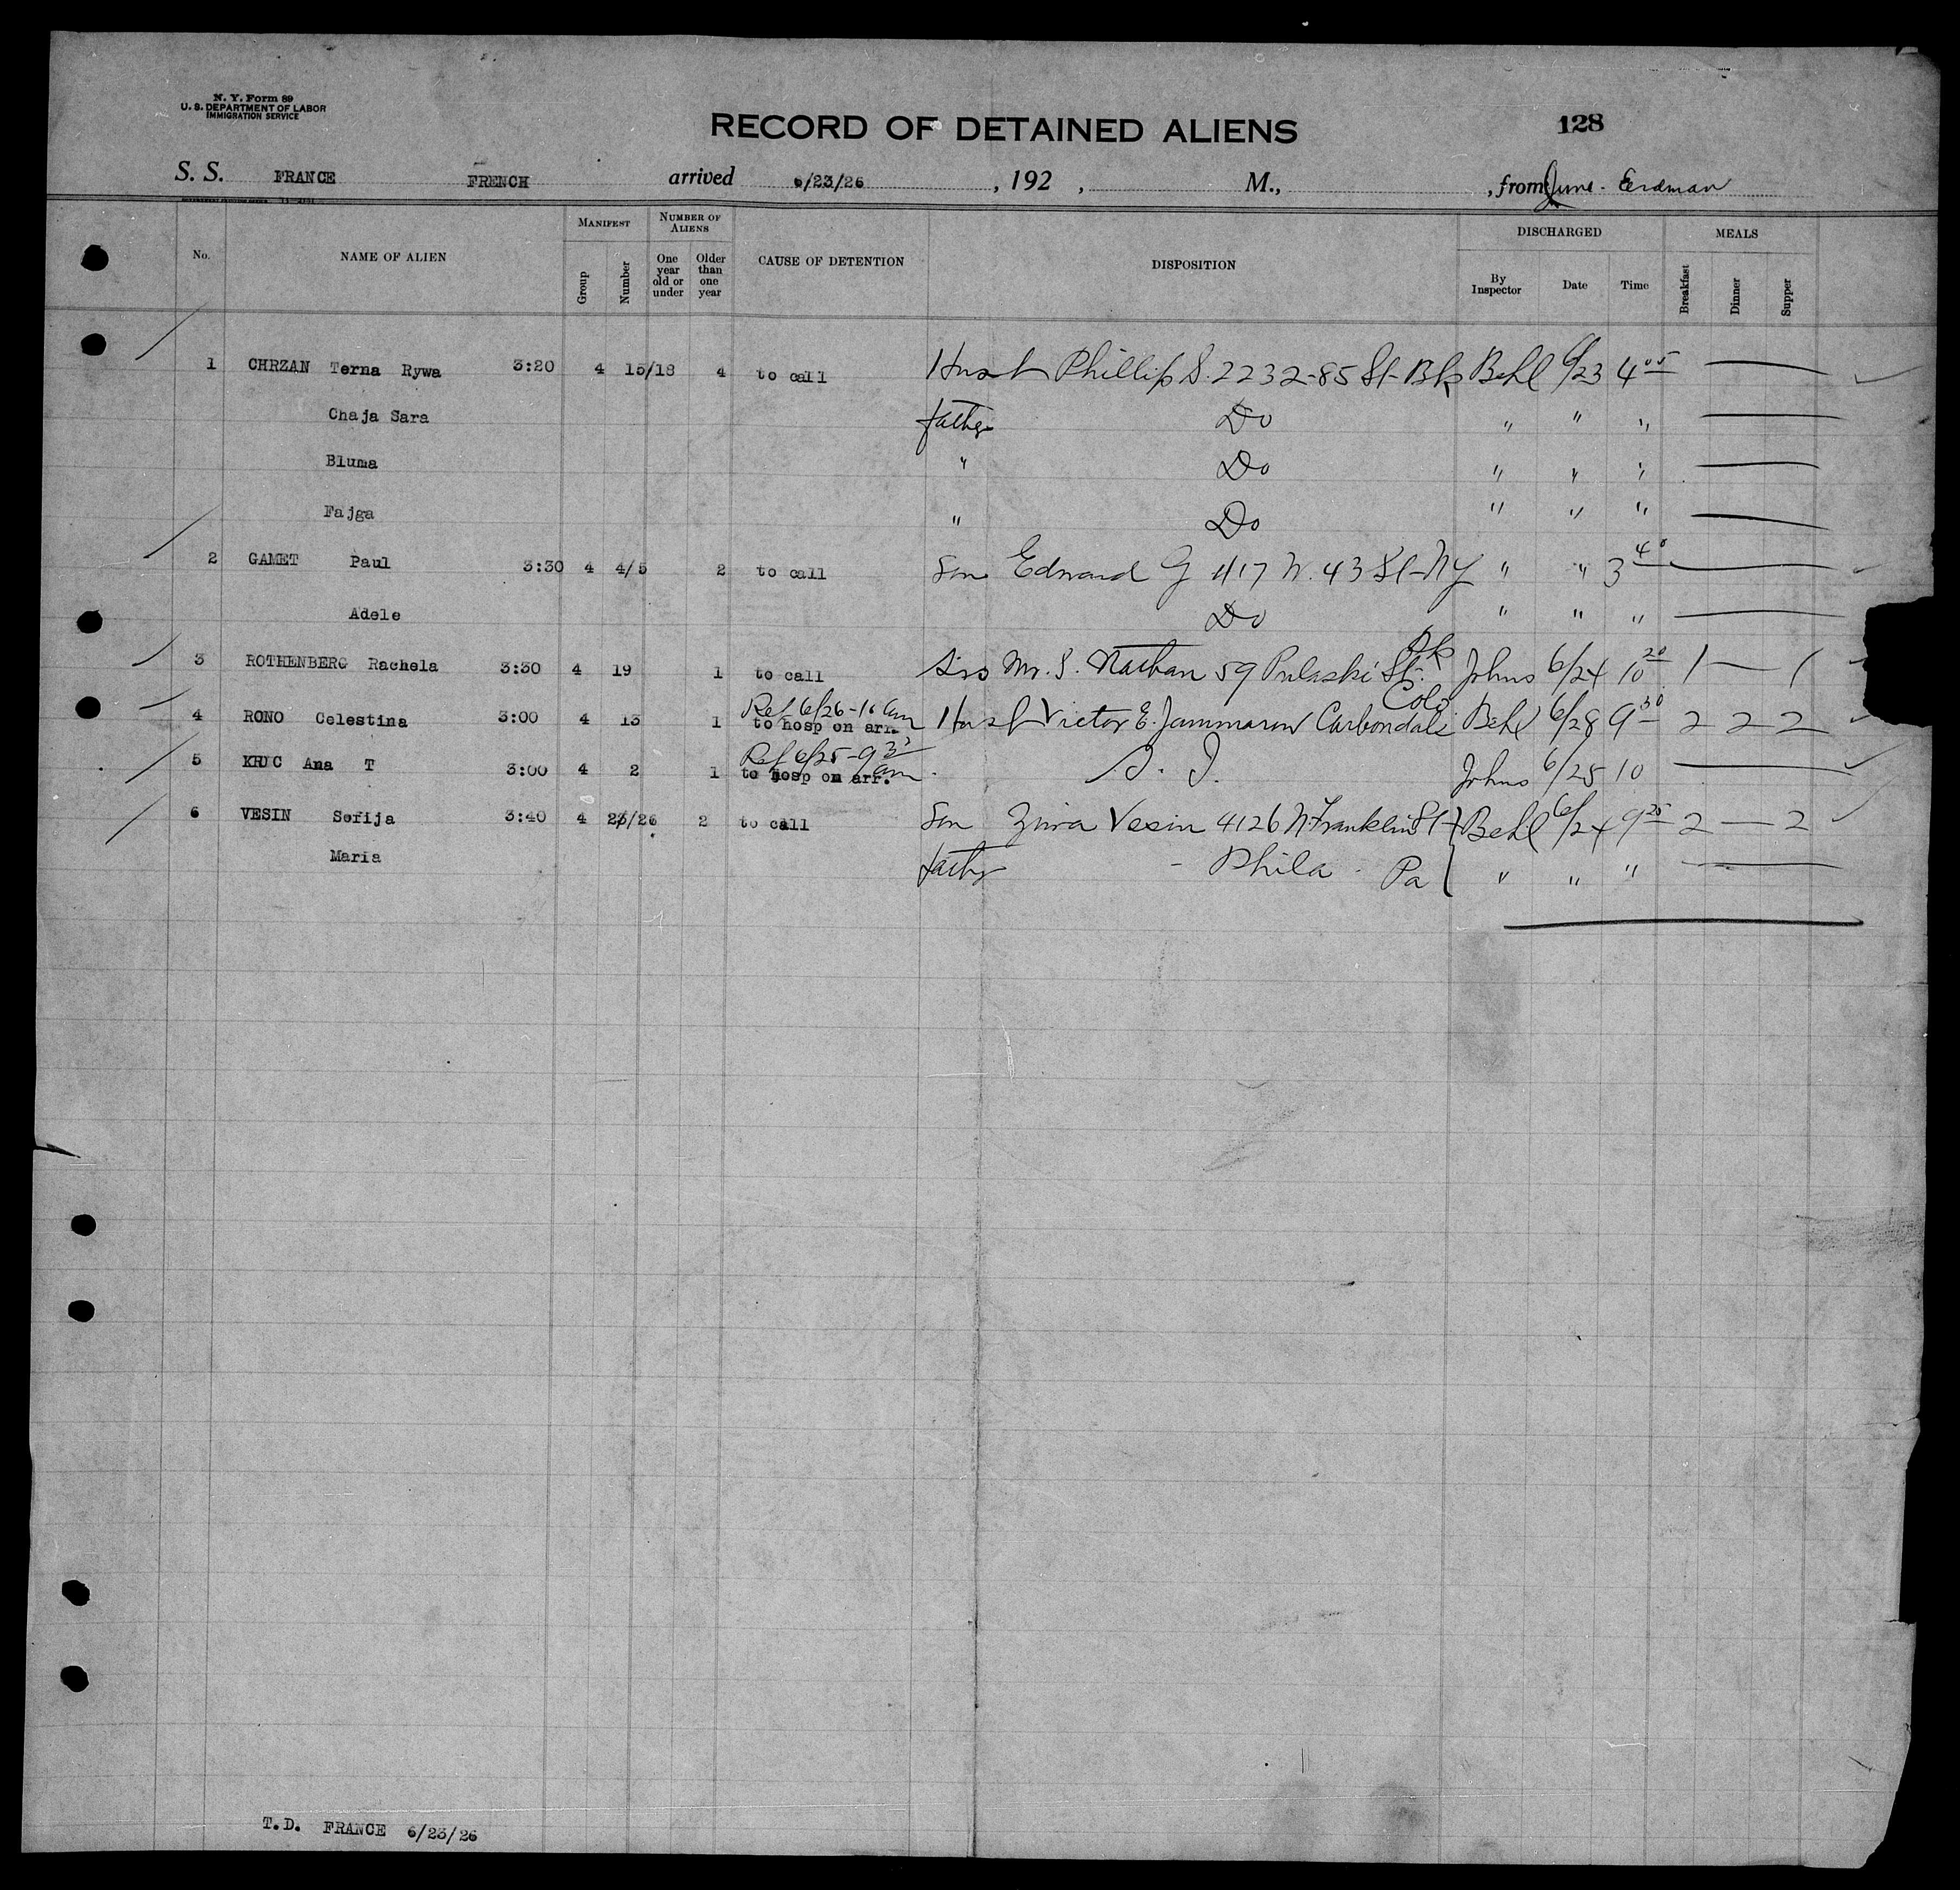 N. Y. Form 89
U. S. DEPARTMENT OF LABOR
IMMIGRATION SERVICE
RECORD OF DETAINED ALIENS
128
S. S. FRANCE FRENCH arrived 6/23/26 , 192 , M., , from Erdman
No. NAME OF ALIEN MANIFEST Group Number NUMBER OF ALIENS One year old or under Older than one year CAUSE OF DETENTION DISPOSITION DISCHARGED By Inspector Date Time MEALS Breakfast Dinner Supper
1 CHRZAN Terna Rywa 3:20 4 15/18 4 to call Husb Phillip S. 2232-85 St- Bk Behl 6/23 4 05
Chaja Sara father Do " " "
Bluma " Do " " "
Fajga " Do " " "
2 GAMET Paul 3:30 4 4/5 2 to call Son Edward G 417 W. 43 St- NY " " 3 40
Adele Do " " "
3 ROTHENBERG Rachela 3:30 4 19 1 to call Mr. S. Nathan 59 Pulaski St. Bk Johns 6/24 10 20 1 — 1
Ref 6/26-10 am
4 RONO Celestina 3:00 4 13 1 to hosp on arr. Husb Victor E. Carbondale Colo Behl 6/28 9 30 2 2 2
Ref 6/25-9 am
5 KRYC Ana T 3:00 4 2 1 to hosp on arr. S. I. Johns 6/25 10
6 VESIN Sofija 3:40 4 25/26 2 to call Son Ziva Vesin 4126 N Franklin St Behl 6/24 9 25 2 — 2
Maria father - Phila - Pa " " "
T.D. FRANCE 6/23/26